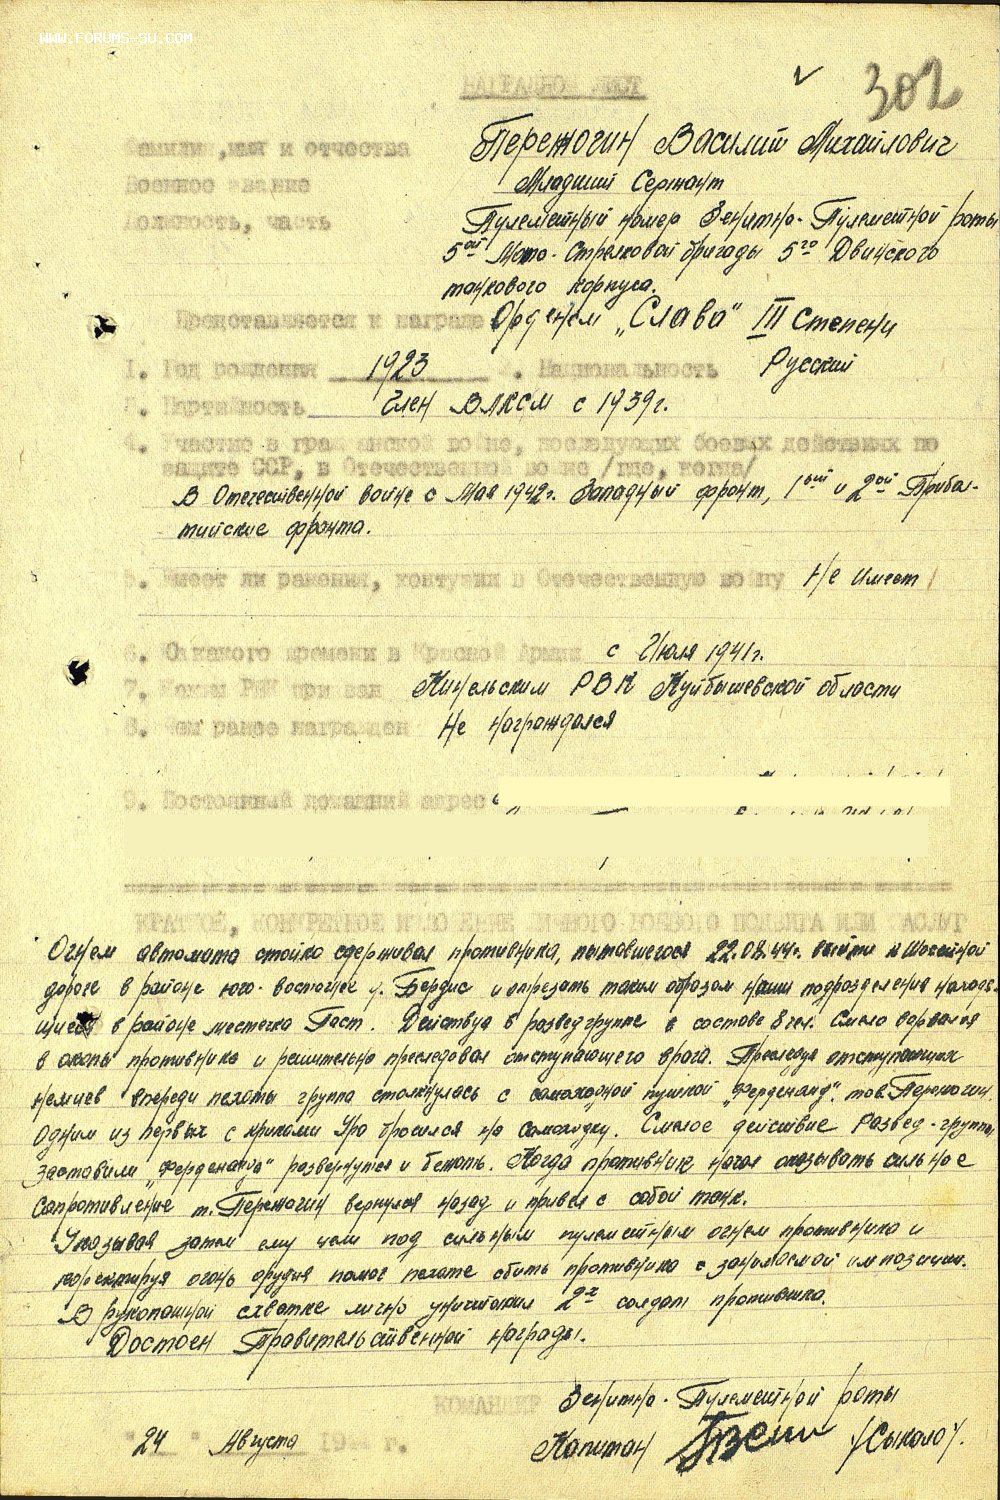 WWW.FORUMS-SU.COM
302
НАГРАДНОЙ ЛИСТ
Фамилия, имя и отчества Пережогин Василий Михайлович
Военное звание Младший Сержант
Должность, часть Пулеметный номер Зенитно-Пулеметной роты
5ой Мото-Стрелковой бригады 5го Двинского
танкового корпуса.
Представляется к награде Орденом „Слава" III Степени
1. Год рождения 1923 2. Национальность Русский
3. Партийность Член ВЛКСМ с 1939г.
4. Участие в гражданской войне, последующих боевых действиях по
защите СССР, в Отечественной войне /где, когда/
В Отечественной войне с Мая 1942г. Западный фронт, 1ый и 2ой Прибал-
тийские фронта.
5. Имеет ли ранения, контузии в Отечественную войну Не имеет
6. С какого времени в Красной Армии с Июля 1941г.
7. Каким РВК призван Кинельским РВК Куйбышевской области
8. Чем ранее награжден Не награждался
9. Постоянный домашний адрес
КРАТКОЕ, КОНКРЕТНОЕ ИЗЛОЖЕНИЕ ЛИЧНОГО БОЕВОГО ПОДВИГА ИЛИ ЗАСЛУГ
Огнем автомата стойко сдерживал противника, пытавшегося 22.08.44г. выйти к Шоссейной
дороге в районе юго-восточнее и. Бердис и отрезать таким образом наши подразделения находя-
щиеся в районе местечка Гаст. Действуя в разведгруппе в составе 8 чел. Смело ворвался
в окопы противника и решительно преследовал отступающего врага. Преследуя отступающих
немцев впереди пехоты группа столкнулась с самоходной пушкой „Фердинанд". тов. Пережогин
Одним из первых с криками Ура бросился на самоходку. Смелое действие Развед-группы
заставили „Фердинанда" развернуться и бежать. Когда противник начал оказывать сильное
сопротивление т. Пережогин вернулся назад и привел с собой танк.
Указывая затем ему цели под сильным пулеметным огнем противника и
корректируя огонь орудия помог пехоте сбить противника с занимаемой им позиции.
В рукопашной схватке лично уничтожил 2х солдат противника.
Достоен Правительственной награды.
КОМАНДИР Зенитно-Пулеметной роты
Капитан /Сыколо/.
"24" Августа 1944 г.